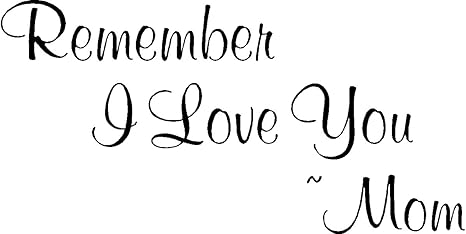 Remember
I Love You
~Mom